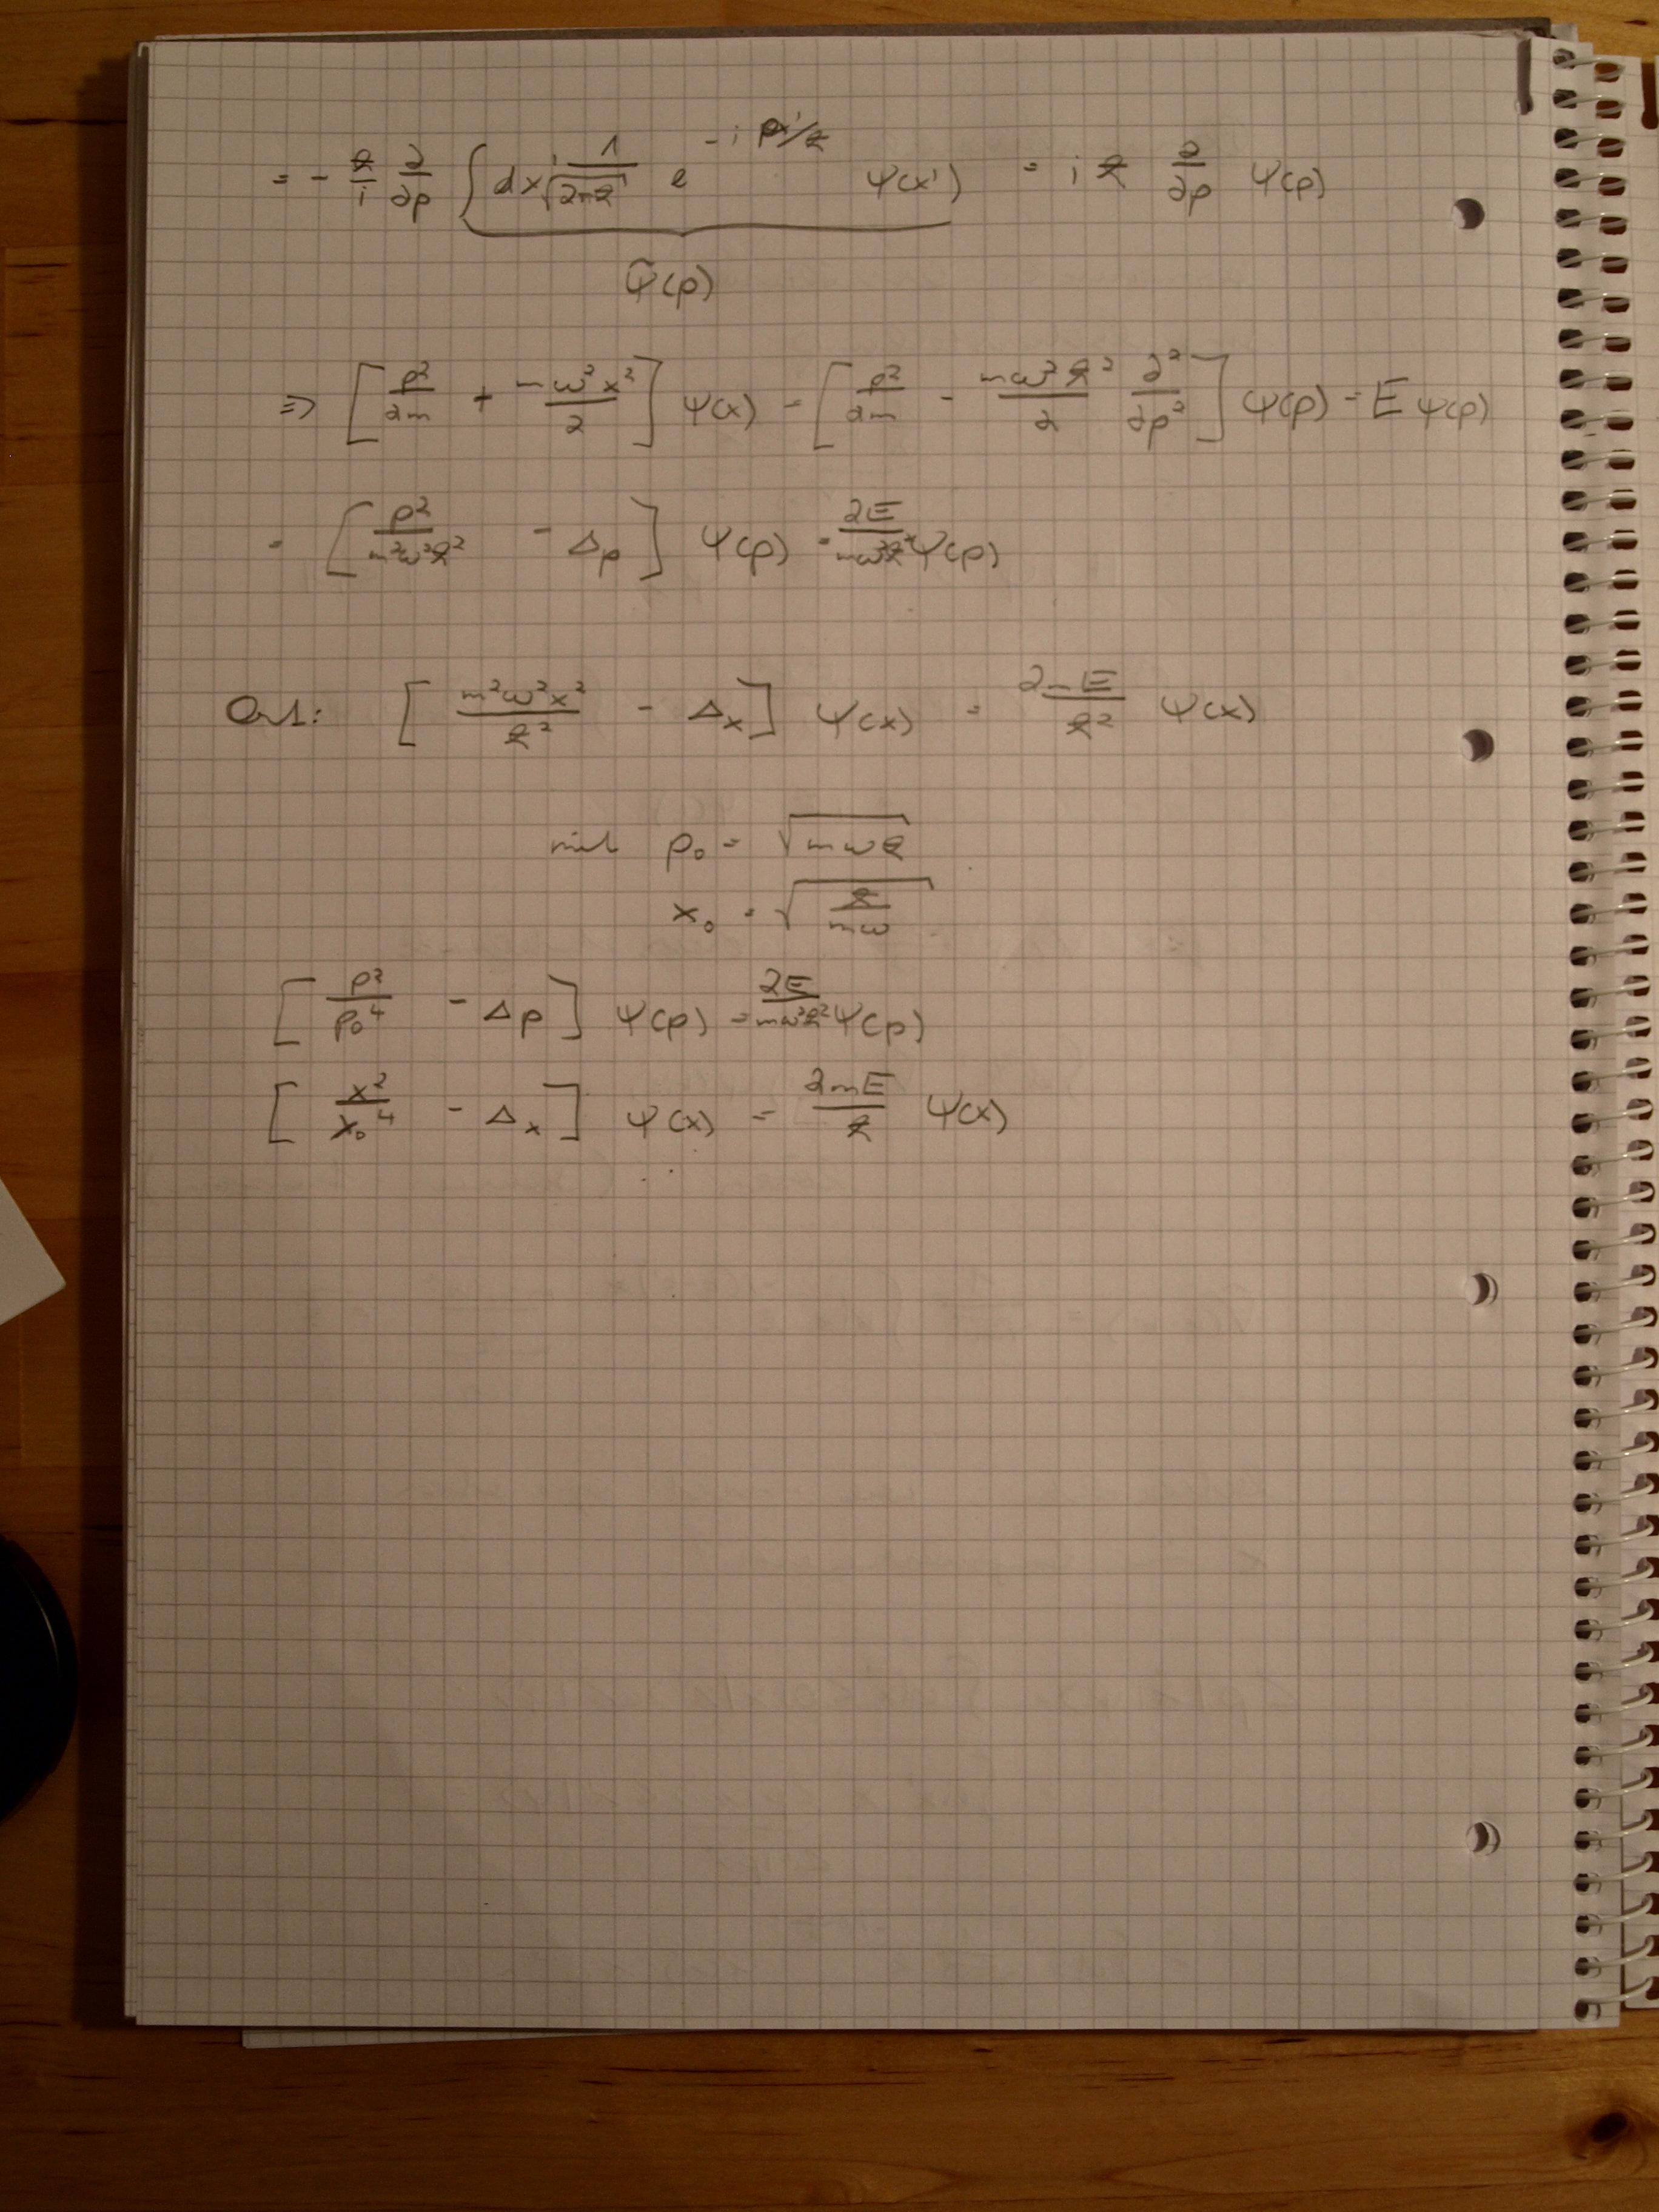 = - ℏ/i ∂/∂p ∫ dx' 1/√(2πℏ) e^(-i px'/ℏ) ψ(x') = i ℏ ∂/∂p ψ(p)
ψ̃(p)
⇒ [p²/2m + mω²x²/2] ψ(x) = [p²/2m - mω²ℏ²/2 ∂²/∂p²] ψ(p) = E ψ(p)
= [p²/m²ω²ℏ² - Δp] ψ(p) = 2E/mω²ℏ² ψ(p)
Ort: [m²ω²x²/ℏ² - Δx] ψ(x) = 2mE/ℏ² ψ(x)
mit p₀ = √(mωℏ)
x₀ = √(ℏ/mω)
[p²/p₀⁴ - Δp] ψ(p) = 2E/mω²ℏ² ψ(p)
[x²/x₀⁴ - Δx] ψ(x) = 2mE/ℏ ψ(x)